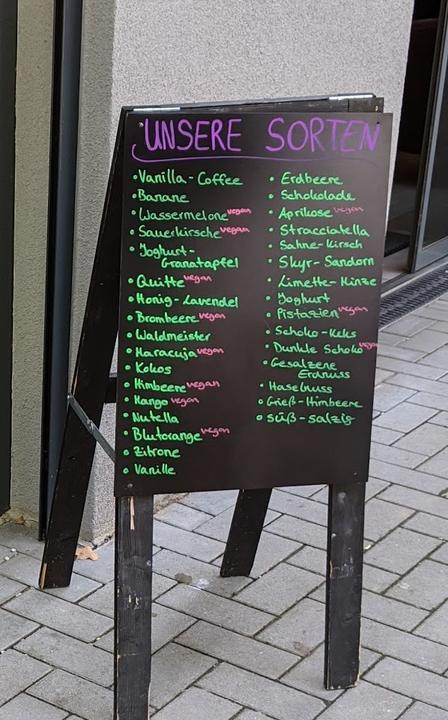 UNSERE SORTEN
• Vanilla - Coffee
• Banane
• Wassermelone vegan
• Sauerkirsche vegan
• Joghurt-
Granatapfel
• Quitte vegan
• Honig - Lavendel
• Brombeere vegan
• Waldmeister
• Maracuja vegan
• Kokos
• Himbeere vegan
• Mango vegan
• Nutella
• Blutorange vegan
• Zitrone
• Vanille
• Erdbeere
• Schokolade
• Aprikose vegan
• Stracciatella
• Sahne-Kirsch
• Skyr - Sandorn
• Limette-Minze
• Joghurt
• Pistazien vegan
• Schoko-Keks
• Dunkle Schoko vegan
• Gesalzene
Erdnuss
• Haselnuss
• Grieß-Himbeere
• süß-salzig